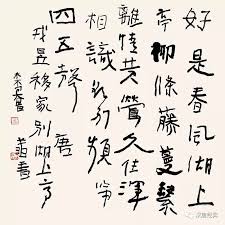 好是春風湖上
亭柳條藤蔓繫
離情黃鶯久住渾
相識欲別頻啼
四五聲 唐
戎昱移家別湖上亭